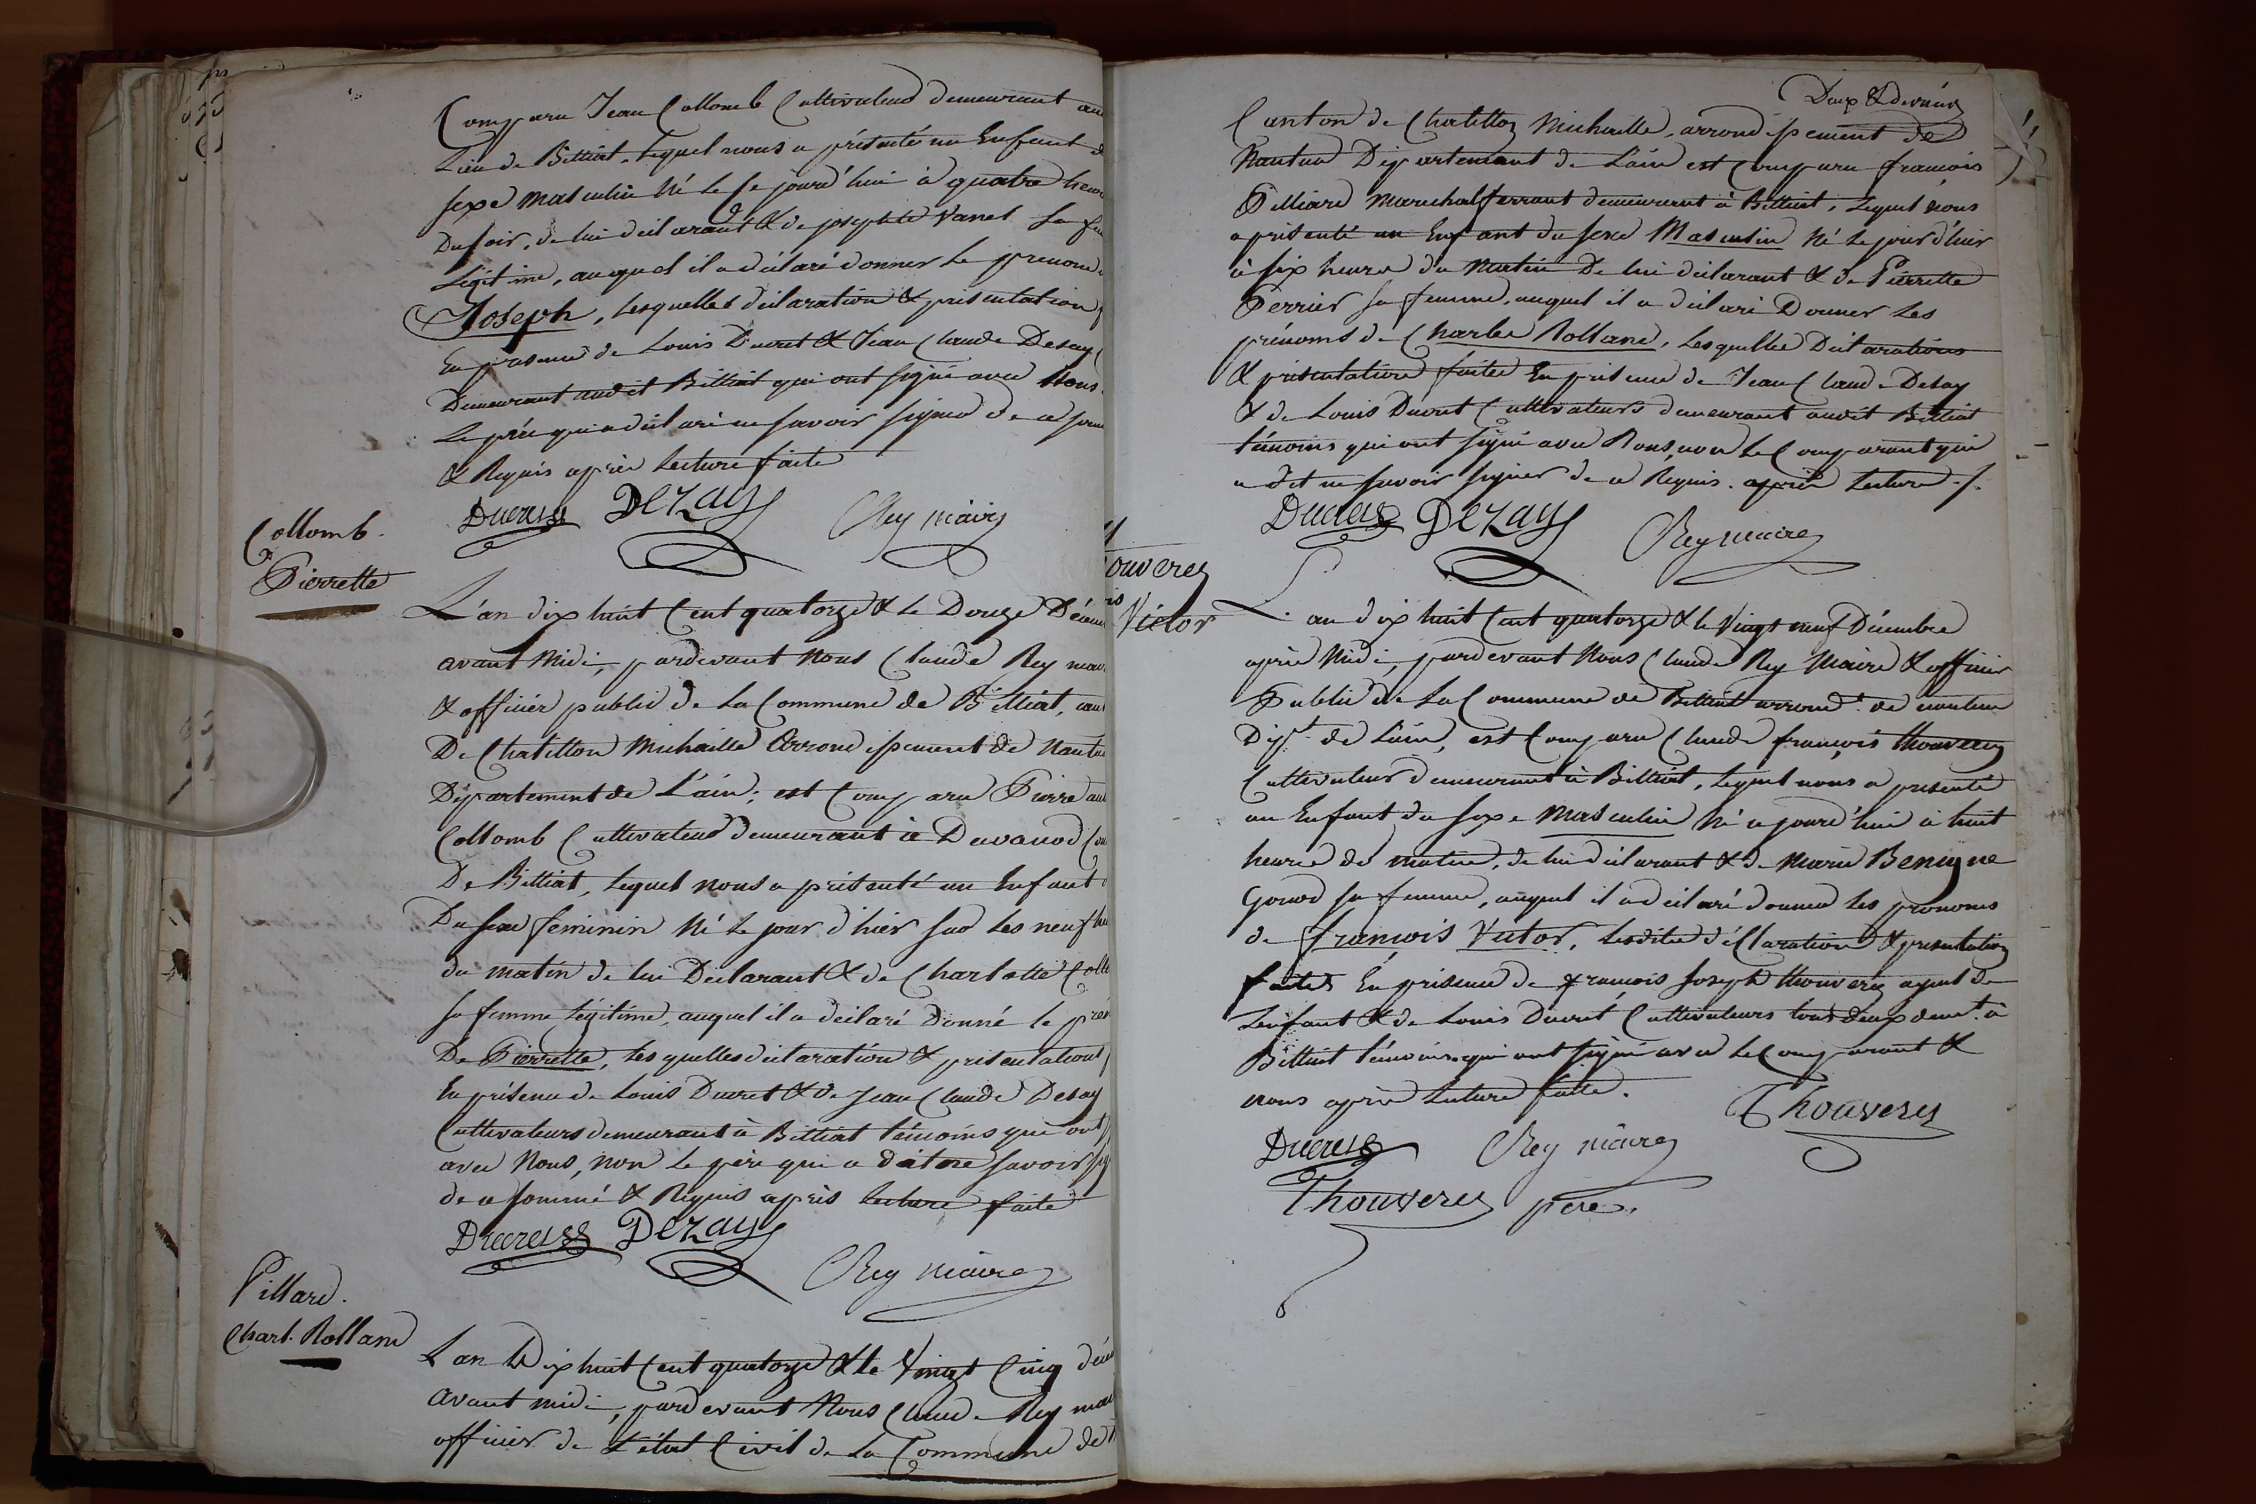 Comparu Jean Collomb Cultivateur demeurant au
Lieu de Billiat, lequel nous a présenté un Enfant d
sexe masculin Né le Ce jourd'hui à quatre heur
Du soir, de lui déclarant & de josephte Vanel Sa fe
Légitime, auquel il a déclaré donner le prenom
Joseph, lesquelles déclaration & présentation
En présence de Louis Ducret & Jean Claude Desay
Demeurant audit Billiat qui ont signé avec Nous
Le père qui a déclaré ne savoir signer de ce
& Requis après Lecture faite
Ducret Dezay Rey maire
Collomb.
Pierrette
L'an dix huit Cent quatorze & le Douze Décem
avant Midi, pardevant Nous Claude Rey mai
& officier public de la Commune de Billiat, can
De Chatillon Michaille Arrondissement de Nantu
Département de L'ain; est Comparu Pierre
Collomb Cultivateur demeurant à Davanod
De Billiat, lequel nous a présenté un Enfant
Du sexe feminin Né le jour d'hier sur les neuf
du matin de lui Déclarant & de Charlotte Coll
sa femme Légitime, auquel il a déclaré Donné le pré
De Pierrette, lesquelles déclaration & présentation
En présence de Louis Ducret & de Jean Claude Desay
Cultivateurs demeurant à Billiat témoins qui ont
avec Nous, non le père qui a dit ne savoir
de ce sommé & Requis après lecture faite
Ducret Dezay
Rey maire
Pillard.
Charl. Rolland
L'an Dix huit Cent quatorze & le Vingt Cinq déc
avant midi, pardevant Nous Claude Rey mai
officier de L'état Civil de la Commune de
Deux & dernier
Canton de Chatillon Michaille, arrondissement de
Nantua Département de L'ain est Comparu françois
Pilliard Marechal ferrant demeurant à Billiat, lequel nous
a présenté un Enfant du sexe Masculin Né le jour d'hier
à six heures du Matin De lui déclarant & de Pierrette
Perrier sa femme, auquel il a déclaré Donner Les
prénoms de Charles Rolland, Lesquelles Déclarations
& présentation faites En présence de Jean Claude Desay
& de Louis Ducret Cultivateurs demeurant audit Billiat
témoins qui ont signé avec Nous, non Le Comparant qui
a dit ne savoir signer de ce Requis. après Lecture ./.
Ducret Dezay
Rey maire
ouverey
is Victor
L'an dix huit Cent quatorze & le Vingt neuf Décembre
après Midi, pardevant Nous Claude Rey Maire & officier
Public de La Commune de Billiat arrond.t de nantua
Dép.t de L'ain, est Comparu Claude françois thouverey
Cultivateur demeurant à Billiat, lequel nous a présenté
un Enfant du sexe Masculin Né ce jourd'hui à huit
heures du matin, de lui déclarant & de Marie Benigne
Gonod sa femme, auquel il a déclaré donner les prenoms
de françois Victor, lesdites déclaration & présentation
faites En présence de françois Joseph thouverey ayeul de
L'enfant & de Louis Ducret Cultivateurs tous deux dem.t à
Billiat témoins qui ont signé avec le Comparant &
nous après Lecture faite.
Thouverey
Ducret Rey maire
Thouverey père.